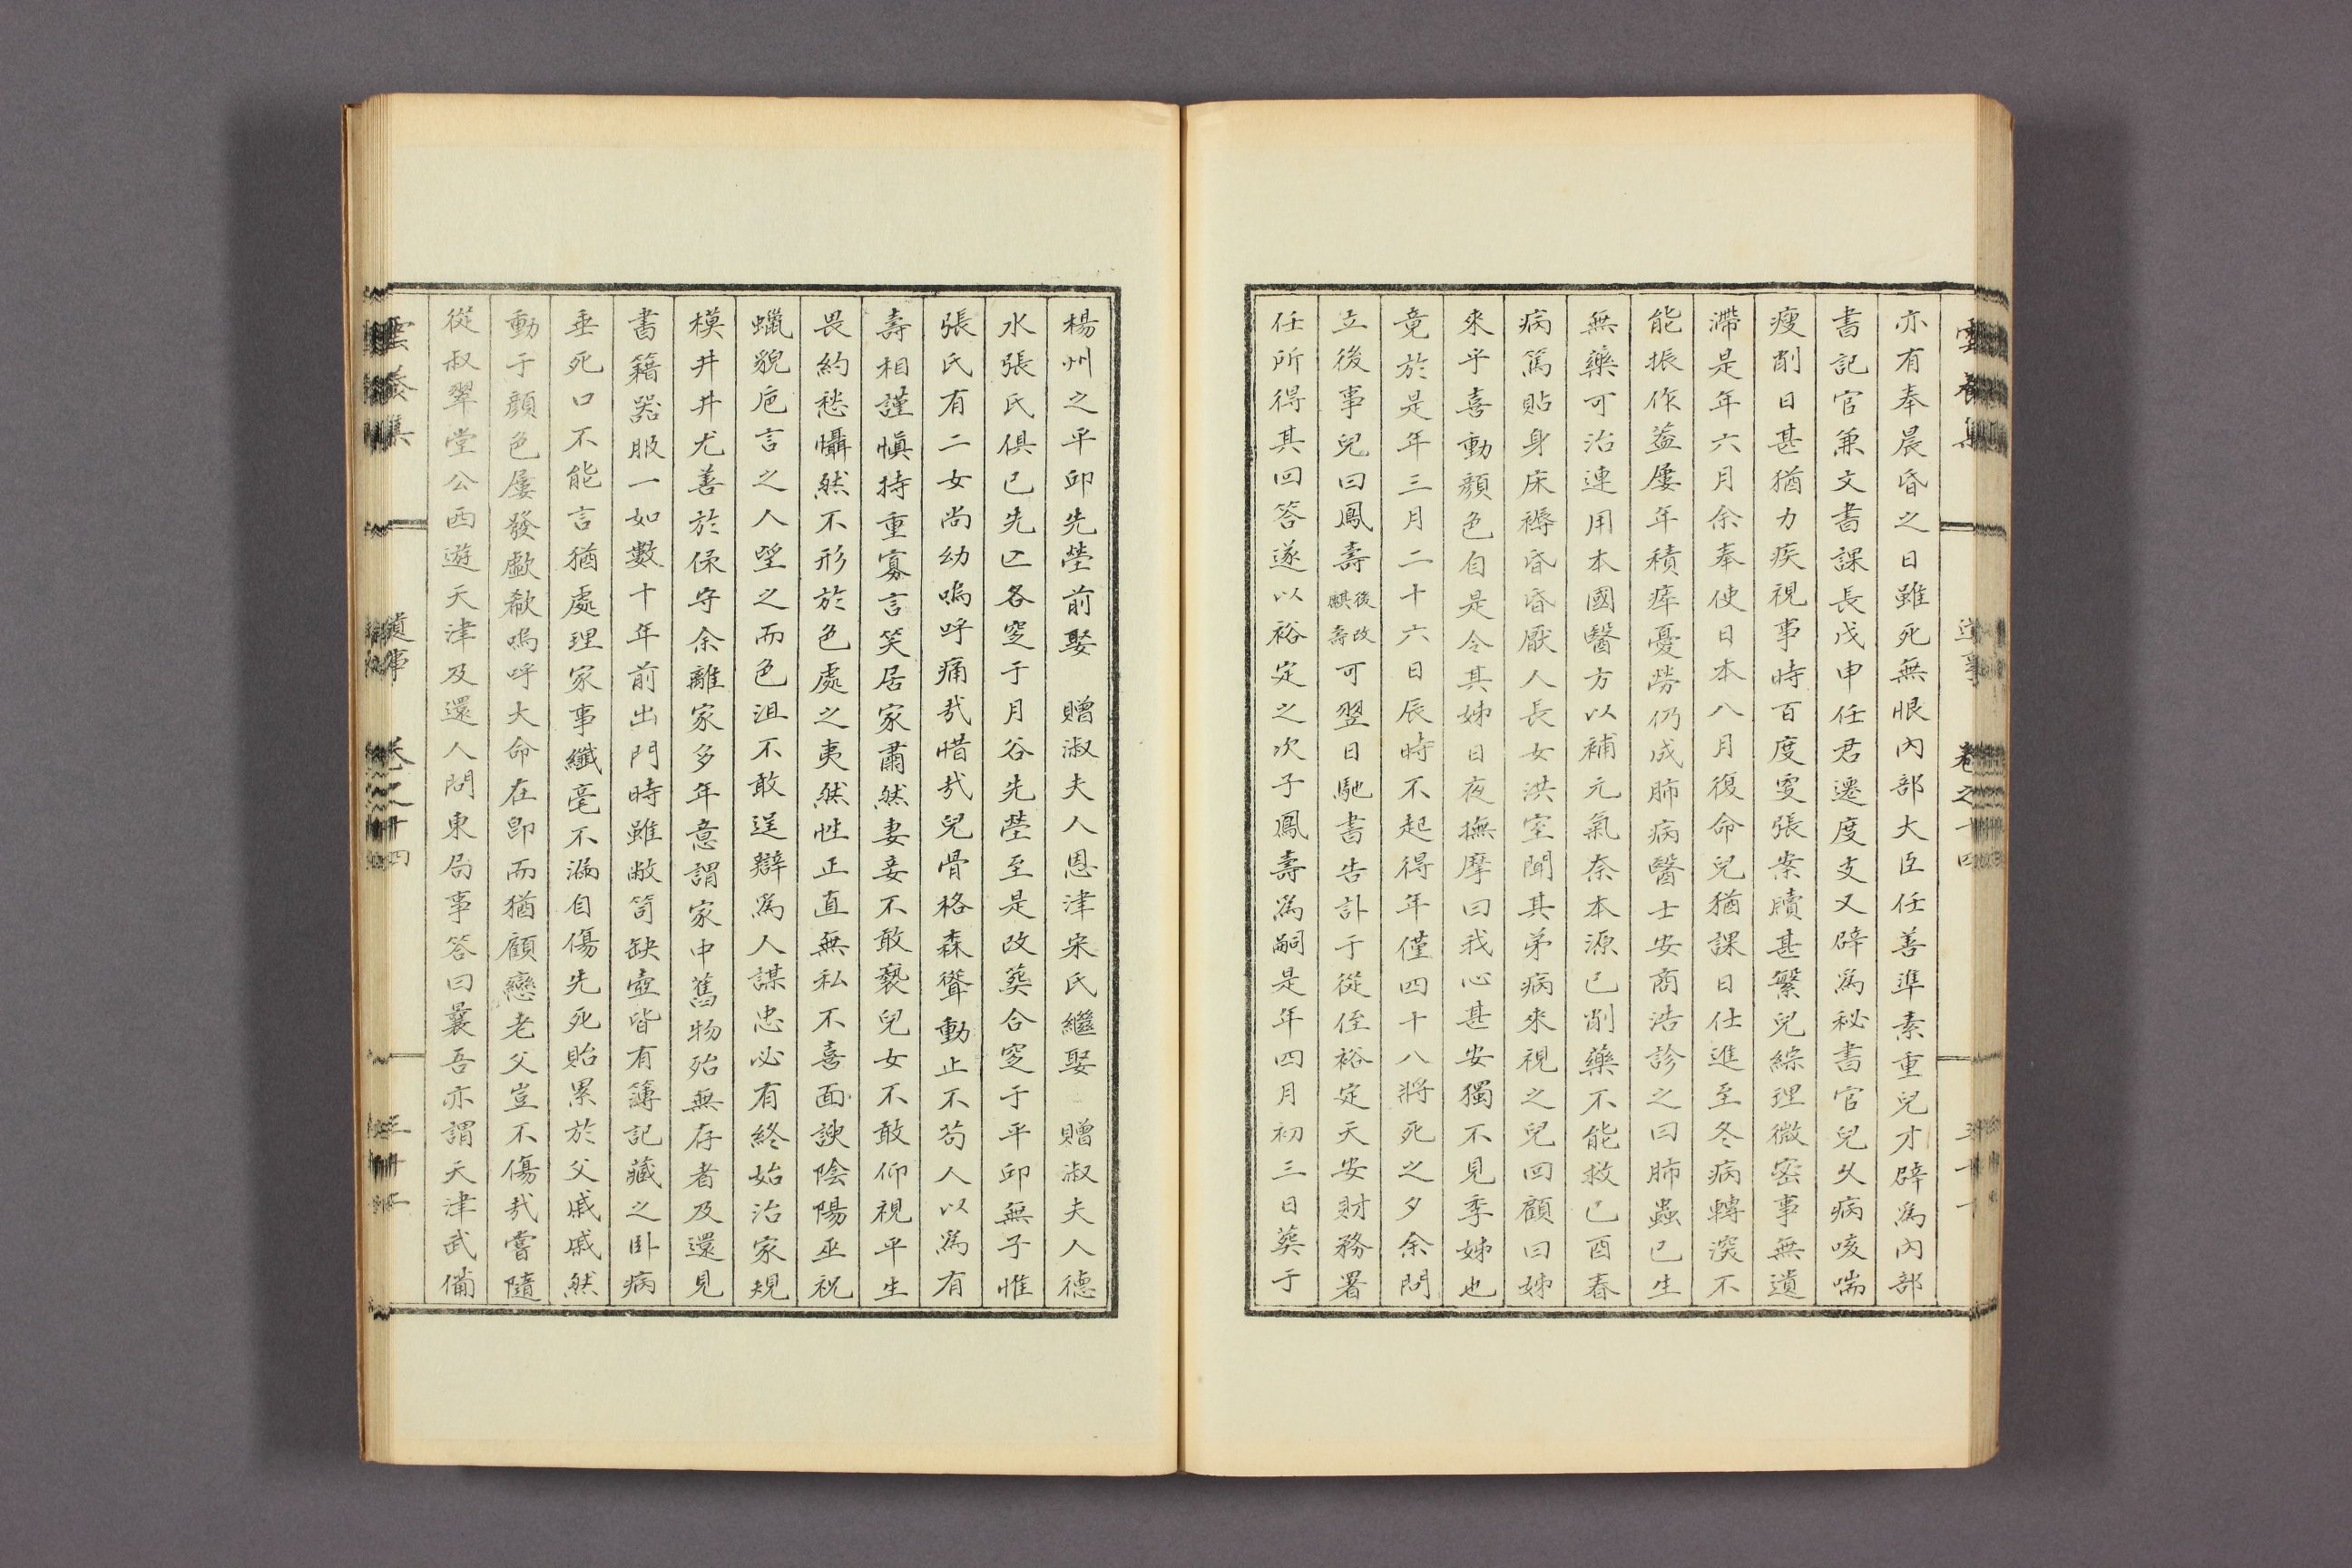 亦有奉晨昏之日雖死無恨內部大臣任善準素重兒才辟爲內部
書記官兼文書課長戊申任君遷度支又辟爲秘書官兒久病咳喘
瘦削日甚猶力疾視事時百度更張案牘甚繁兒綜理微密事無遺
滯是年六月余奉使日本八月復命兒猶課日仕進至冬病轉深不
能振作盖屢年積瘁憂勞仍成肺病醫士安商浩診之曰肺蟲已生
無藥可治連用本國醫方以補元氣奈本源已削藥不能救己酉春
病篤貼身床褥昏昏厭人長女洪室聞其弟病來視之兒回顧曰姊
來乎喜動顏色自是令其姊日夜撫摩曰我心甚安獨不見季姊也
竟於是年三月二十六日辰時不起得年僅四十八將死之夕余問
立後事兒曰鳳壽後改麒壽可翌日馳書告訃于從侄裕定天安財務署
任所得其回答遂以裕定之次子鳳壽爲嗣是年四月初三日葬于
雲養集
卷之十四
楊州之平邱先塋前娶 贈淑夫人恩津宋氏繼娶 贈淑夫人德
水張氏俱已先亡各窆于月谷先塋至是改葬合窆于平邱無子惟
張氏有二女尚幼嗚呼痛哉惜哉兒骨格森聳動止不苟人以爲有
壽相謹愼持重寡言笑居家肅然妻妾不敢褻兒女不敢仰視平生
畏約愁懾然不形於色處之夷然性正直無私不喜面諛陰陽巫祝
蠟貌巵言之人望之而色沮不敢逞辯爲人謀忠必有終始治家規
模井井尤善於保守余離家多年意謂家中舊物殆無存者及還見
書籍器服一如數十年前出門時雖敝笥缺壺皆有簿記藏之卧病
垂死口不能言猶處理家事纖毫不漏自傷先死貽累於父戚戚然
動于顏色屢發歔欷嗚呼大命在卽而猶顧戀老父豈不傷哉嘗隨
從叔翠堂公西遊天津及還人問東局事答曰曩吾亦謂天津武備
雲養集
遺事
卷之十四